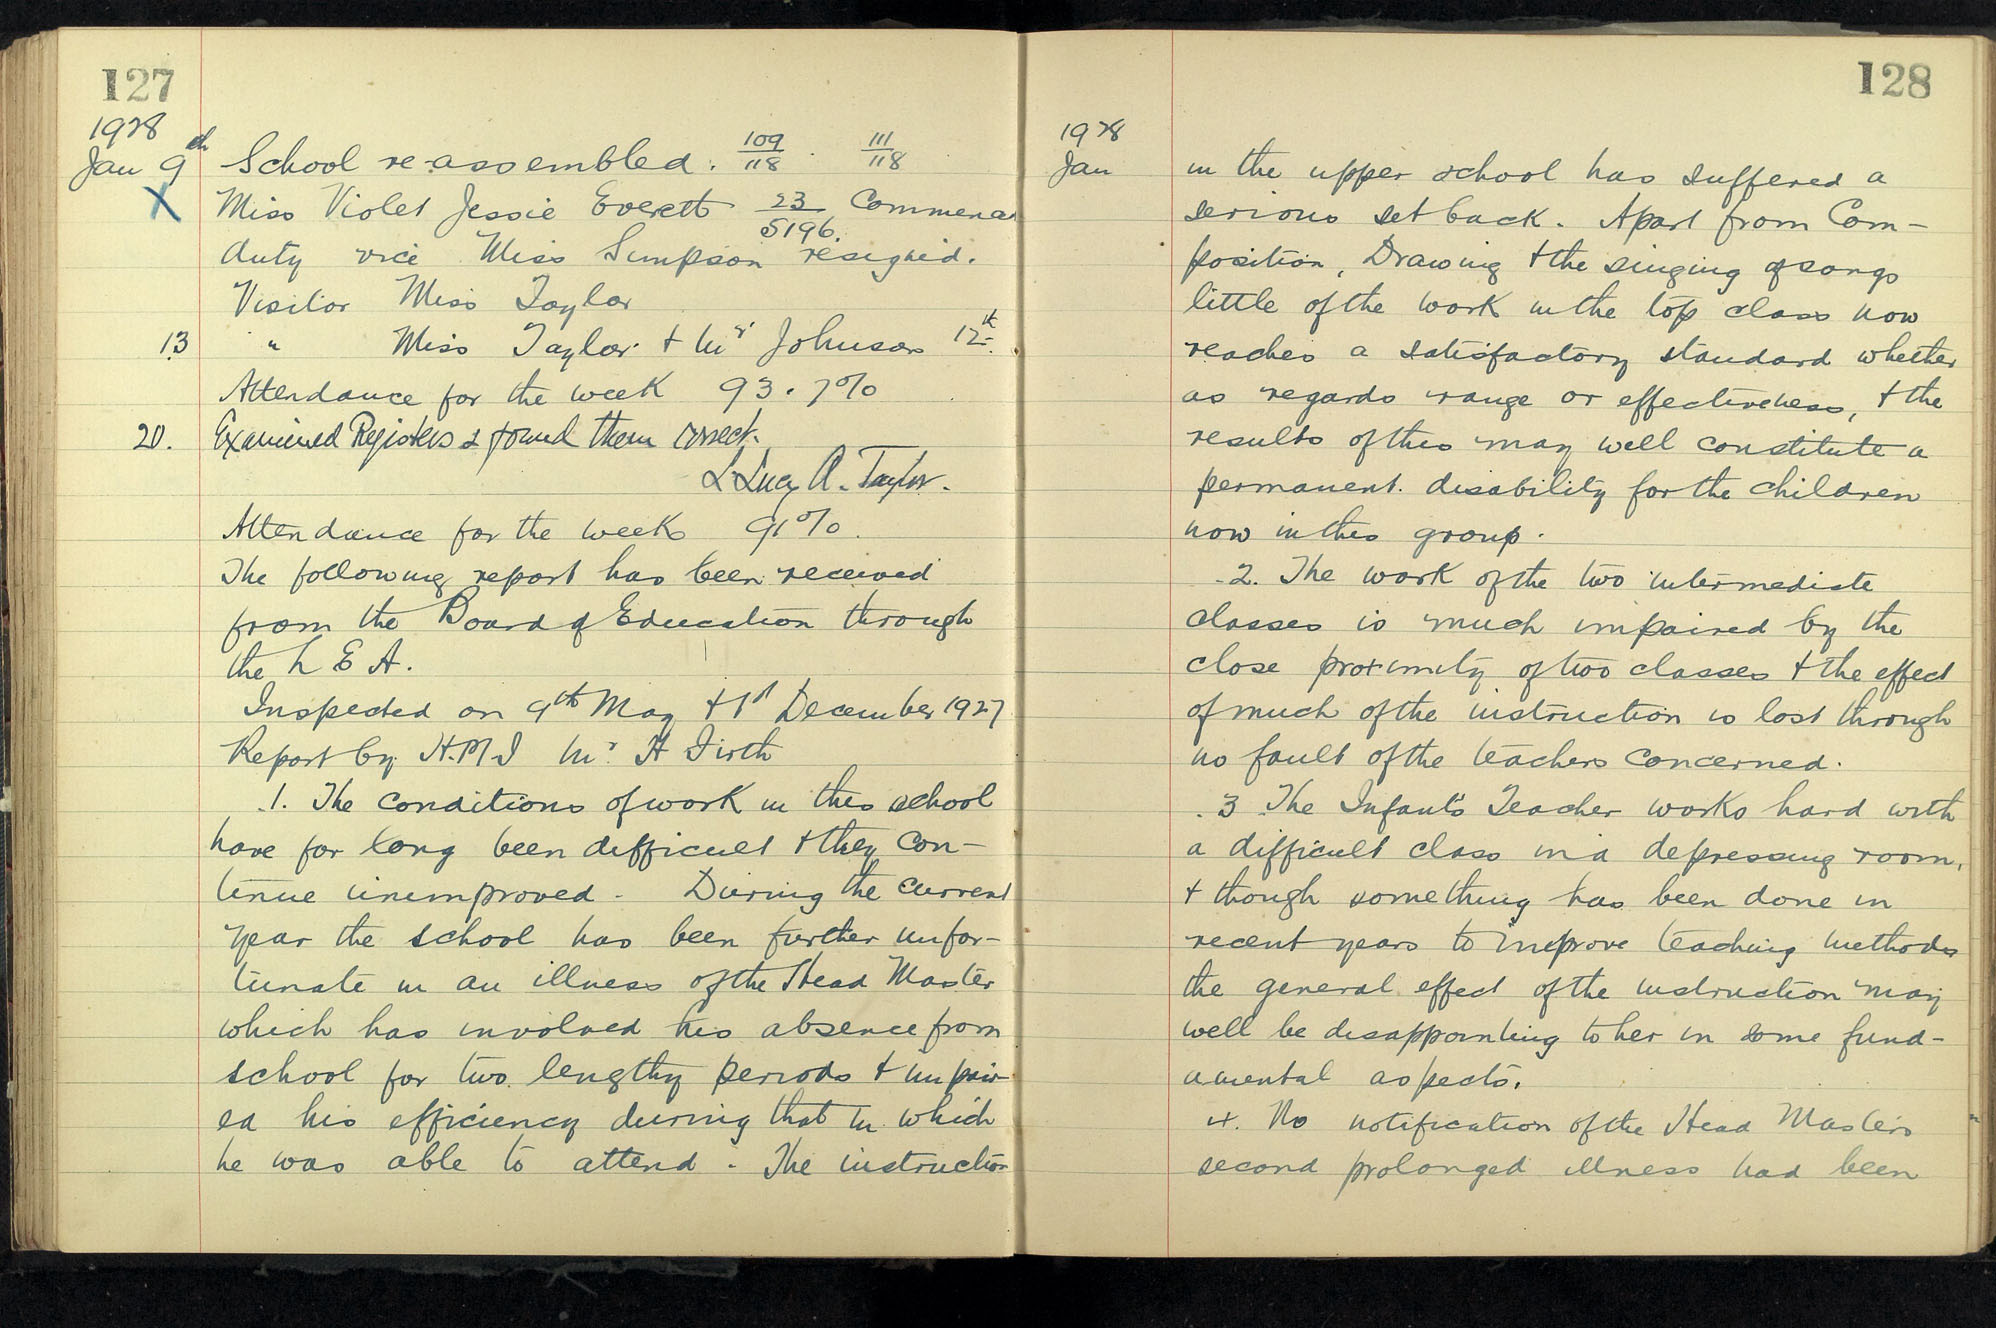 127
1928
Jan 9th School re-assembled. 109/118 . 111/118
X Miss Violet Jessie Everett 23/5196. Commences
duty vice Miss Simpson resigned.
Visitor Miss Taylor
13 " Miss Taylor + Mr Johnson 12th.
Attendance for the week 93.7%
20. Examined Registers & found them correct.
L. Lucy A. Taylor.
Attendance for the week 91%.
The following report has been received
from the Board of Education through
the L E A.
Inspected on 9th May + 1st December 1927
Report by H.M.I Mr. H Firth
.1. The conditions of work in this school
have for long been difficult + they con-
tinue unimproved - During the current
year the school has been further unfor-
tunate in an illness of the Head Master
which has involved his absence from
school for two lengthy periods + impair-
ed his efficiency during that in which
he was able to attend - The instruction
128
1928
Jan in the upper school has suffered a
serious set back. Apart from Com-
position, Drawing + the singing of songs
little of the work in the top class now
reaches a satisfactory standard whether
as regards range or effectiveness, + the
results of this may well constitute a
permanent. disability for the children
now in this group.
.2. The work of the two intermediate
classes is much impaired by the
close proximity of two classes + the effect
of much of the instruction is lost through
no fault of the teachers concerned.
.3 The Infants Teacher works hard with
a difficult class in a depressing room,
+ though something has been done in
recent years to improve teaching methods
the general effect of the instruction may
well be disappointing to her in some fund-
amental aspects.
4. No notification of the Head Masters
second prolonged illness had been